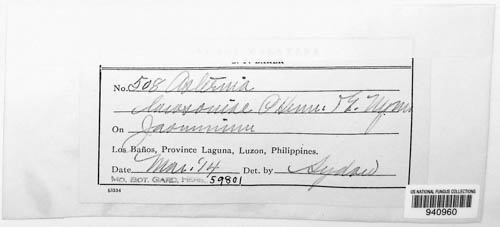 C. F. BAKER
No. 508 Asterina
Lawsoniae P Henn. & E. Nym
On Jasminum
Los Baños, Province Laguna, Luzon, Philippines.
Date Mar. '14 Det. by Sydow
MO. BOT. GARD. HERB. 59801
51334
US NATIONAL FUNGUS COLLECTIONS
940960